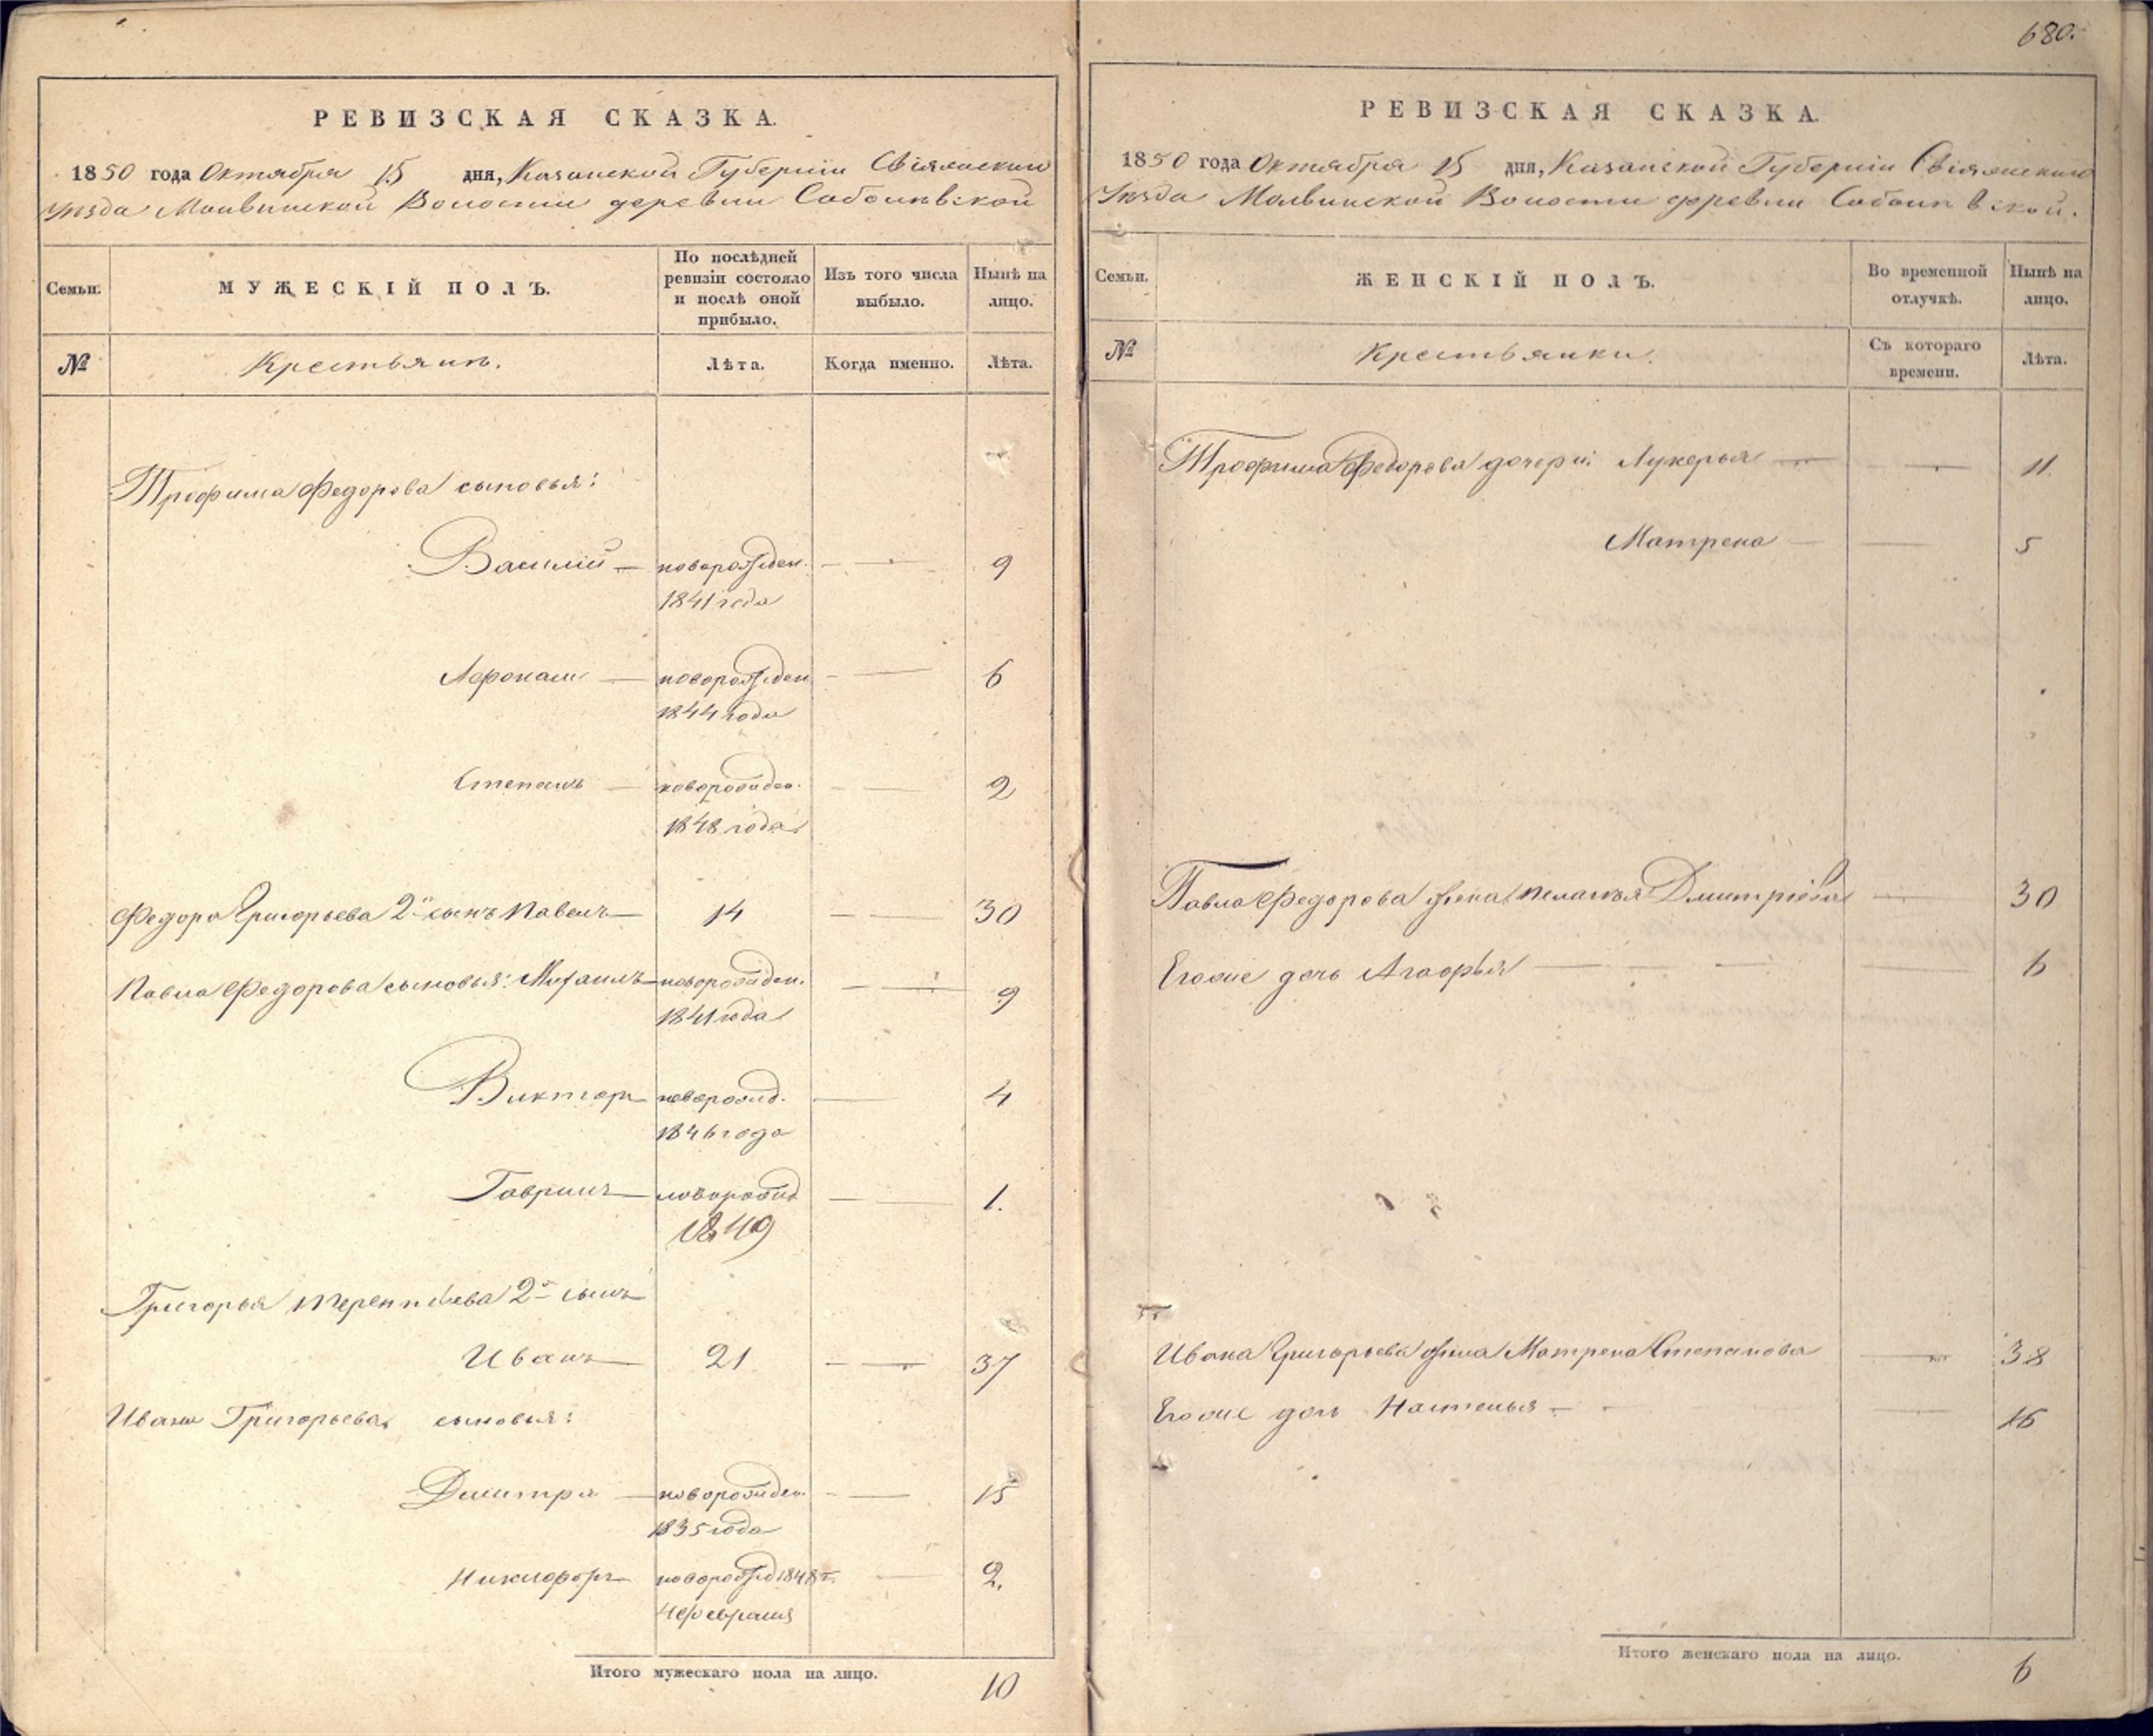 680.
РЕВИЗСКАЯ СКАЗКА.
1850 года Октября 15 дня, Казанской Губернии Свіяжскаго
Уѣзда Молвинской Волости деревни Соболевской
Семьи. МУЖЕСКІЙ ПОЛЪ. По послѣдней ревизіи состояло и послѣ оной прибыло. Изъ того числа выбыло. Нынѣ на лицо.
№ Крестьянъ. Лѣта. Когда именно. Лѣта.
Трофима Федорова сыновья:
Василій — новорожден. — 9
1841 года
Афонасій — новорожден — 6
1844 года
Степанъ — новорожден. — 2
1848 года
Федора Григорьева 2й сынъ Павелъ — 14 — 30
Павла Федорова сыновья: Михаилъ — новорожден. — 9
1841 года
Викторъ — новорожд. — 4
1846 года
Гаврилъ — новорожд — 1.
1849
Григорья Терентьева 2й сынъ
Иванъ — 21 — 37
Ивана Григорьева сыновья:
Дмитри — новорожден. — 15
1835 года
Никифоръ — новорожд 1848 г. — 2.
4 февраля
Итого мужескаго пола на лицо. 10
РЕВИЗСКАЯ СКАЗКА.
1850 года Октября 15 дня, Казанской Губерніи Свіяжскаго
Уѣзда Молвинской Волости деревни Соболевской.
Семьи. ЖЕНСКІЙ ПОЛЪ. Во временной отлучкѣ. Нынѣ на лицо.
№ Крестьянки. Съ котораго времени. Лѣта.
Трофима Федорова дочери: Лукерья — — 11.
Матрена — — 5
Павла Федорова жена Пелагѣя Дмитріева — 30
Егоже дочь Агафья — — 6
Ивана Григорьева жена Матрена Степанова — 38
Егоже дочь Настасья — — 16
Итого женскаго пола на лицо. 6